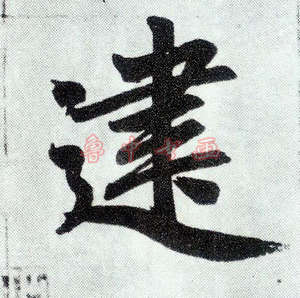 建
鲁中书画